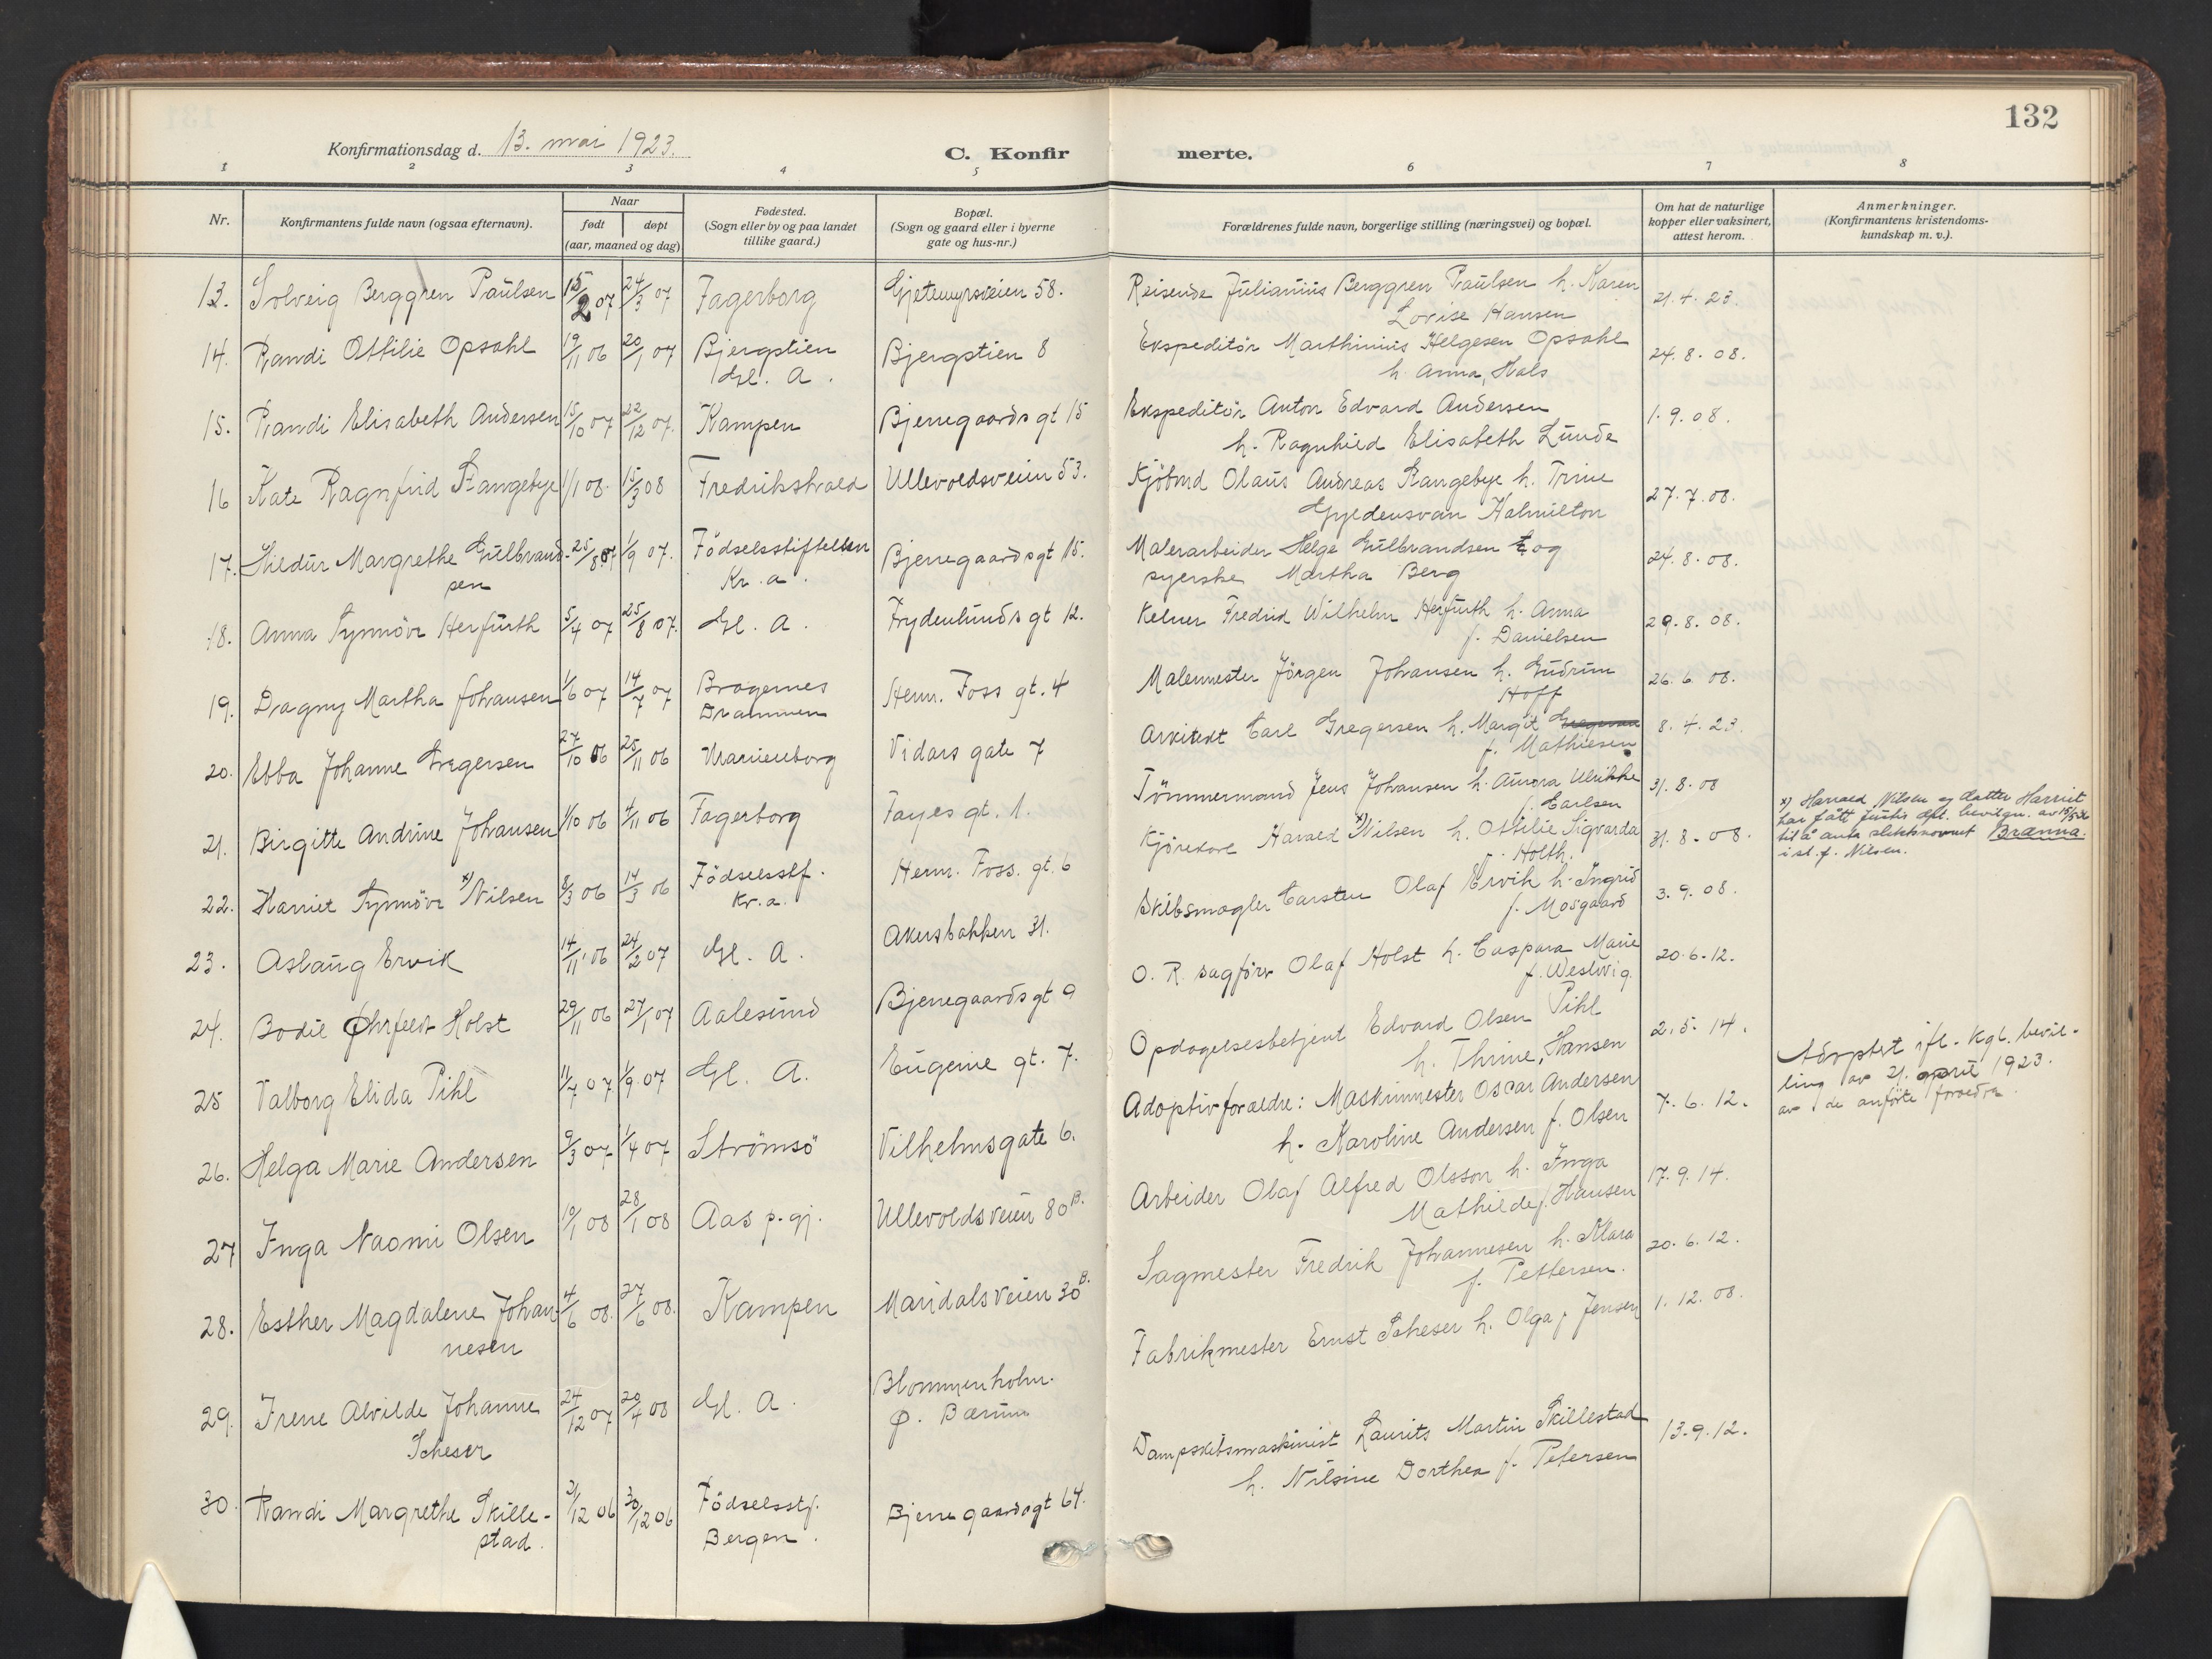 132
Konfirmationsdag d. 13. mai 1923.
C. Konfir
merte.
1 2 3 4 5 6 7 8
Nr.
Konfirmantens fulde navn (ogsaa efternavn).
Naar
født
døpt
(aar, maaned og dag)
Fødested.
(Sogn eller by og paa landet
tillike gaard.)
Bopæl.
(Sogn og gaard eller i byerne
gate og hus-nr.)
Forældrenes fulde navn, borgerlige stilling (næringsvei) og bopæl.
Om hat de naturlige
kopper eller vaksinert,
attest herom.
Anmerkninger.
(Konfirmantens kristendoms-
kundskap m. v.).
13. Solveig Berggren Paulsen 15/2 07 24/3 07 Fagerborg Gjetemyrsveien 58. Reisende Julianius Berggren Paulsen h. Karen 21.4.23.
Lovise Hansen
14. Randi Ottilie Opsahl 19/11 06 20/1 07 Bjergstien Bjergstien 8 Ekspeditör Marthinius Helgesen Opsahl 24.8.08.
Gl. A. h. Anna, Hals
15. Randi Elisabeth Andersen 15/10 07 22/12 07. Kampen Bjerregaards gt 15 Ekspeditör Anton Edvard Andersen 1.9.08.
h. Ragnhild Elisabeth Lunde
16 Kate Ragnfrid Stangebye 1/1 08. 15/3 08 Fredrikshald Ullevoldsveien 53. Kjöbmd Olaus Andreas Stangebye h. Trine 27.7.08.
Gyldensvan Halmilton
17. Hildur Margrethe Gulbrand- 25/8 07 1/9 07. Födselsstiftelsen Bjerregaards gt 15. Malerarbeider Helge Gulbrandsen og 24.8.08.
sen Kr.a. syerske Martha Berg
18. Anna Synnöve Herfurth 5/4 07 25/8 07. Gl. A. Frydenlunds gt 12. Kelner Fredrid Wilhelm Herfurth h. Anna 29.8.08.
f. Danielsen
19. Dagny Martha Johansen 1/6 07 14/7 07 Bragernes Herm. Foss gt. 4 Malermester Jörgen Johansen h. Gudrun 26.6.08.
Drammen Hoff
20. Ebba Johanne Gregersen 27/10 06 25/11 06 Marienborg Vidars gate 7 Arkitekt Carl Gregersen h. Margit Gregersen 8.4.23.
f. Mathiesen
21. Birgitte Andrine Johansen 1/10 06 4/11 06 Fagerborg Fayes gt. 1. Tömmermand Jens Johansen h. Aurora Ulrikke 31.8.08
f. Carlsen
22. Harriet Synnöve x) Nilsen 8/3 06 14/3 06 Födselsstf. Herm. Foss. gt. 6 Kjörekarl Harald x) Nilsen h. Ottilie Sigvarda 31.8.08.
Kr.a. f. Holth.
x) Harald Nilsen og datter Harriet
har fått Justis dpt. bevilgn. av
til å anta slektsnavnet Brænna
i st. f. Nilsen.
23. Aslaug Ervik 14/11 06 24/2 07 Gl. A. Akersbakken 31. Skibsmægler Carsten Olaf Ervik h. Ingrid 3.9.08.
f. Mosgaard
24. Bodil Øhrfeldt Holst 29/11 06 27/1 07 Aalesund Bjerregaards gt 9 O. R. sagförer Olaf Holst h. Caspara Marie 20.6.12.
f. Westvig.
25 Valborg Elida Pihl 11/7 07 1/9 07 Gl. A. Eugenie gt. 7. Opdagelsesbetjent Edvard Olsen Pihl 2.5.14.
h. Thrine, Hansen
26. Helga Marie Andersen 9/3 07 1/4 07 Strömsö Vilhelmsgate 6. Adoptivforældre: Maskinmester Oscar Andersen 7.6.12.
h. Karoline Andersen f. Olsen
Adoptert ifl. kgl. bevil-
ling av 21. april 1923.
av de anförte forældre.
27 Inga Naomi Olsen 10/1 08 28/1 08 Aas p.gj. Ullevoldsveien 80 B. Arbeider Olaf Alfred Olsson h. Inga 17.9.14.
Mathilde f. Hansen
28. Esther Magdalene Johan- 4/6 08. 27/6 08. Kampen Maridalsveien 30 B. Sagmester Fredrik Johannesen h. Klara 20.6.12.
nesen f. Pettersen.
29. Irene Alvilde Johanne 24/12 07 20/4 08 Gl. A. Blommenholm. Fabrikmester Ernst Scheser h. Olga f. Jensen 1.12.08.
Scheser Ø. Bærum
30. Randi Margrethe Skille- 2/12 06 30/12 06 Födselsstf. Bjerregaards gt 64. Dampskibsmaskinist Laurits Martin Skillestad 13.9.12.
stad. Bergen. h. Nilsine Dorthea f. Petersen